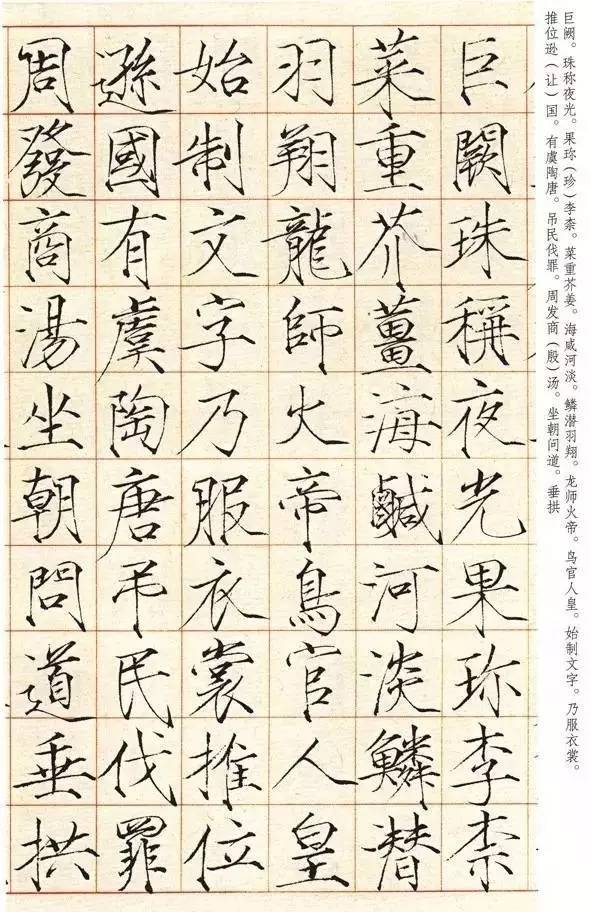 巨阙。珠称夜光。果珎(珍)李柰。菜重芥姜。海咸河淡。鳞潜羽翔。龙师火帝。鸟官人皇。始制文字。乃服衣裳。
推位逊(让)国。有虞陶唐。吊民伐罪。周发商(殷)汤。坐朝问道。垂拱
巨闕珠稱夜光果珎李柰
菜重芥薑海鹹河淡鱗潛
羽翔龍師火帝鳥官人皇
始制文字乃服衣裳推位
遜國有虞陶唐弔民伐罪
周發商湯坐朝問道垂拱